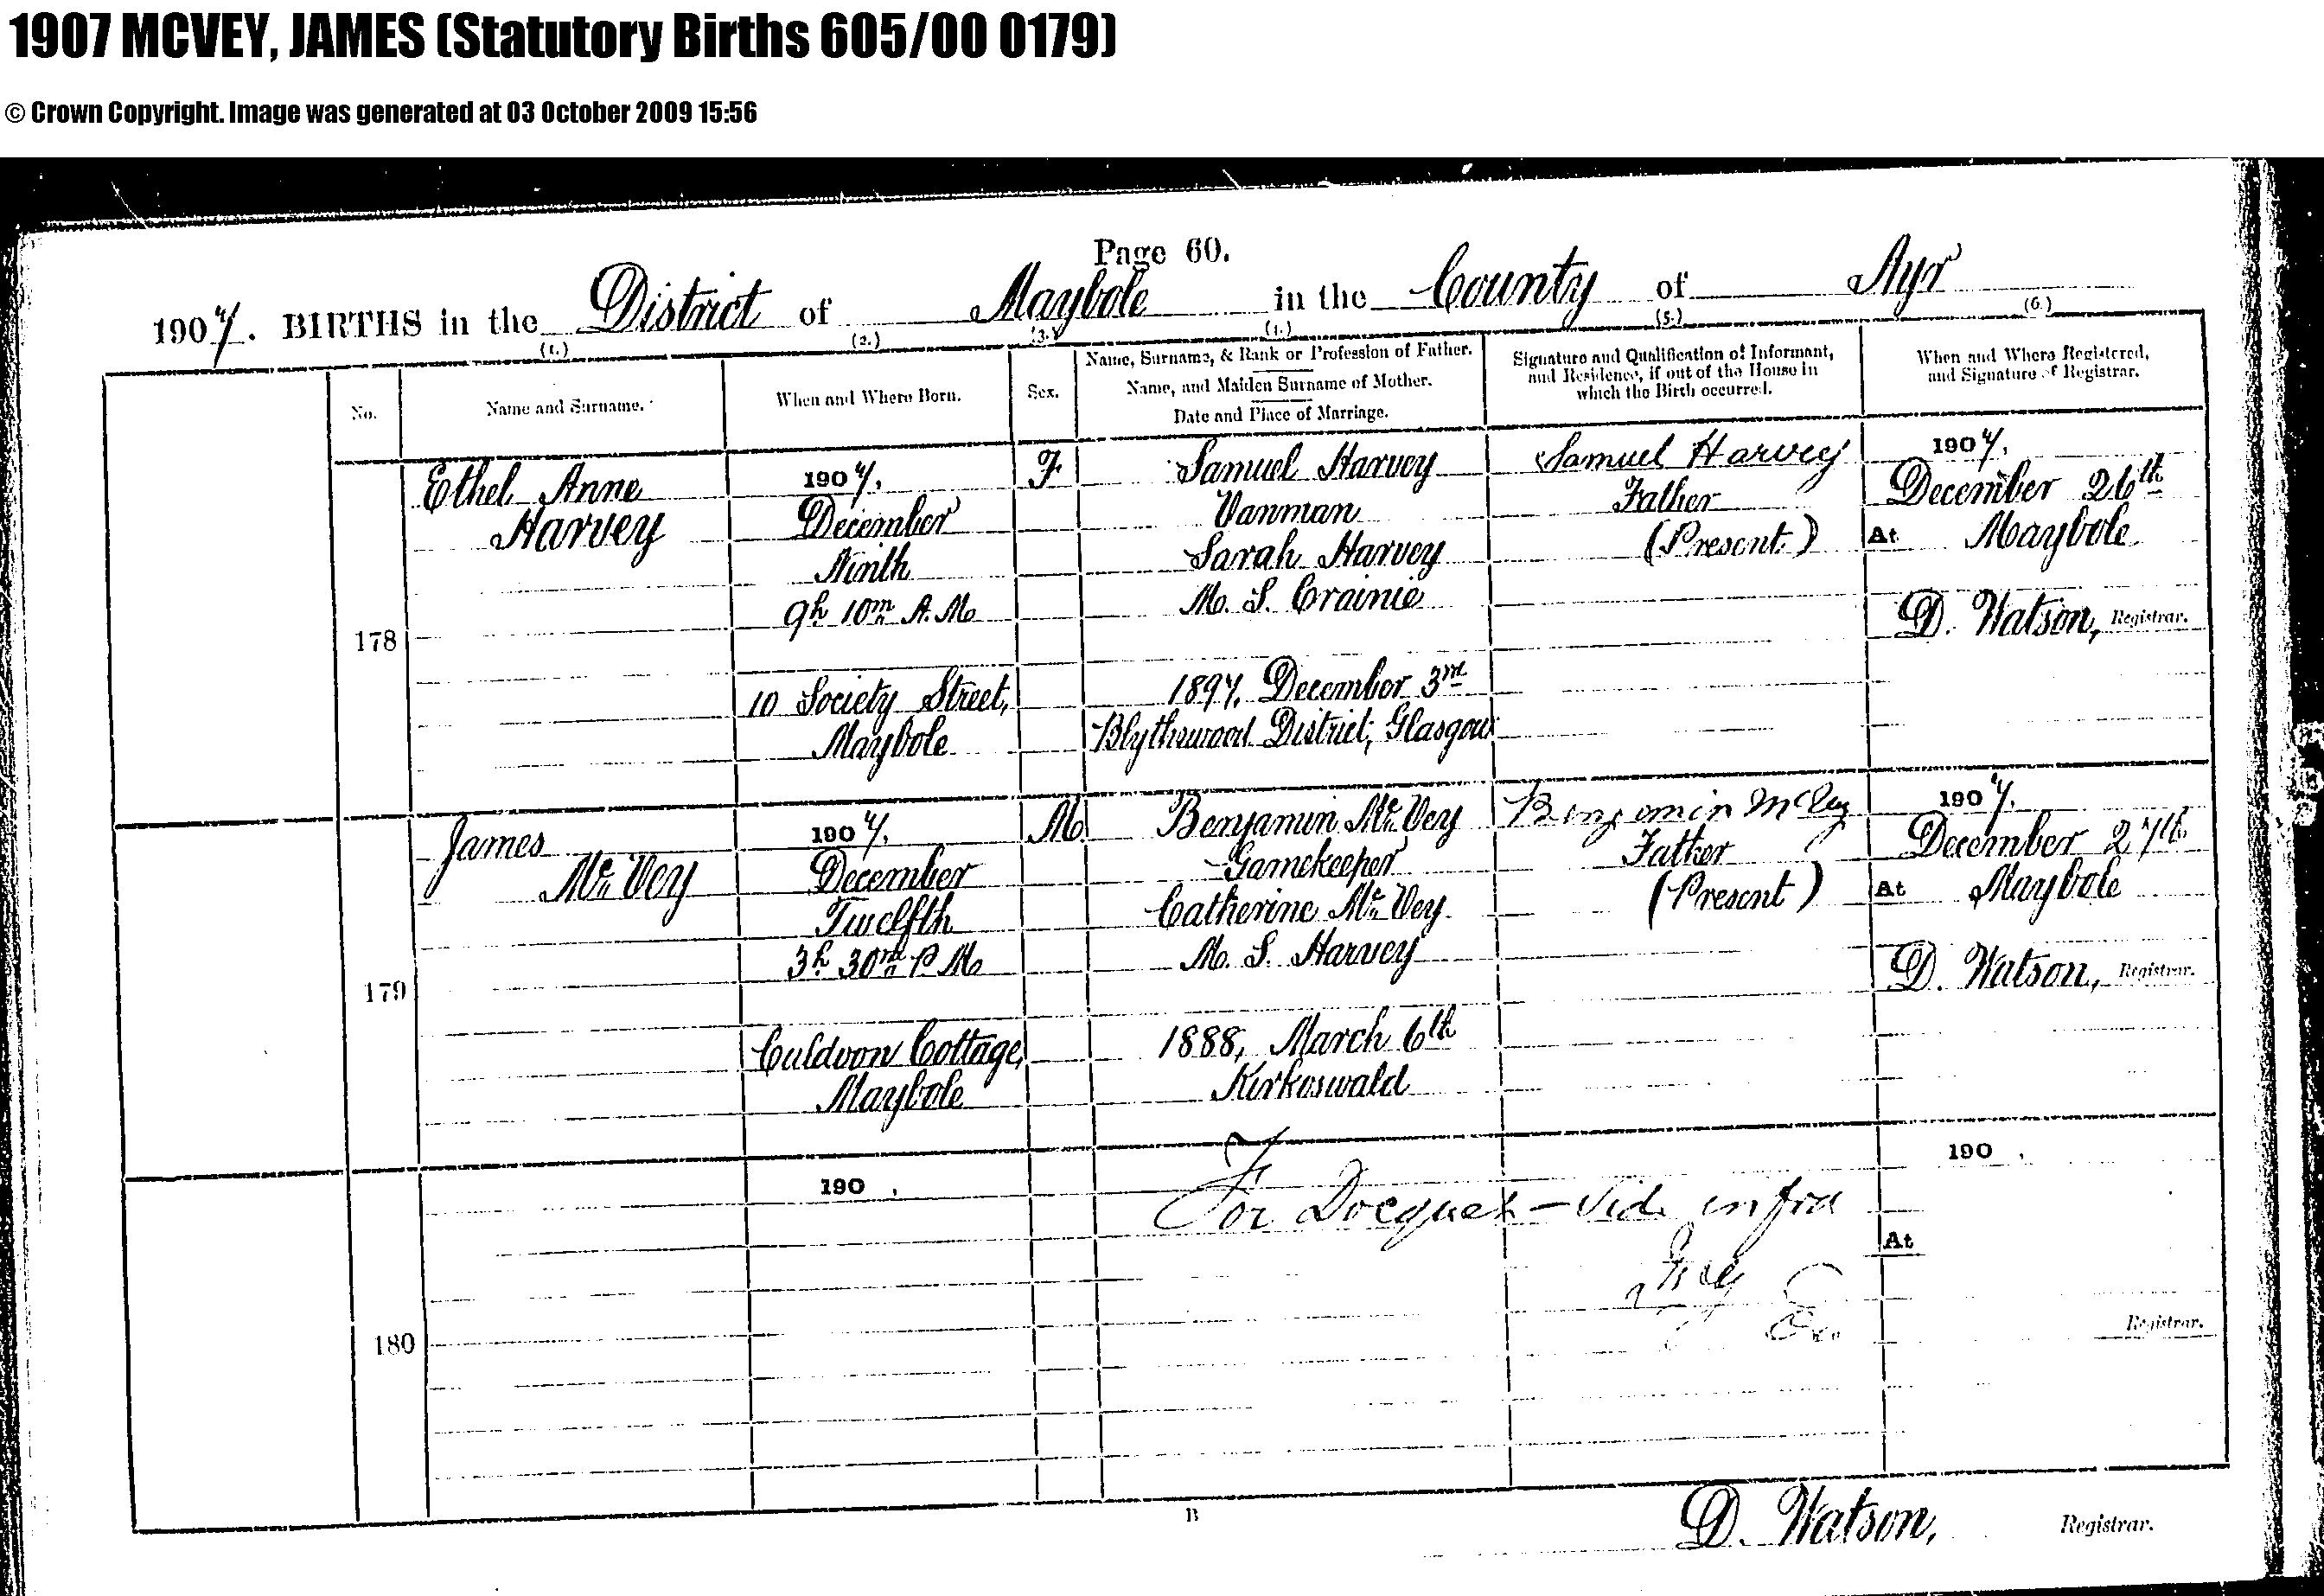 1907 MCVEY, JAMES (Statutory Births 605/00 0179)
© Crown Copyright. Image was generated at 03 October 2009 15:56
Page 60.
1907. BIRTHS in the District of Maybole in the County of Ayr
(1.) (2.) (3.) (4.) (5.) (6.)
No.
Name and Surname.
When and Where Born.
Sex.
Name, Surname, & Rank or Profession of Father.
Name, and Maiden Surname of Mother.
Date and Place of Marriage.
Signature and Qualification of Informant,
and Residence, if out of the House in
which the Birth occurred.
When and Where Registered,
and Signature of Registrar.
178
Ethel Anne
Harvey
1907.
December
Ninth
9h 10m A.M.
10 Society Street,
Maybole
F
Samuel Harvey
Vanman
Sarah Harvey
M. S. Crainie
1897, December 3rd
Blythswood District, Glasgow
Samuel Harvey
Father
(Present)
1907.
December 26th
At Maybole
D. Watson, Registrar.
179
James
McVey
1907.
December
Twelfth
3h 30m P.M.
Culdoon Cottage,
Maybole
M.
Benjamin McVey
Gamekeeper
Catherine McVey
M. S. Harvey
1888, March 6th
Kirkoswald
Benjamin McVey
Father
(Present)
1907.
December 27th
At Maybole
D. Watson, Registrar.
180
190 .
For Docquet - Vide infra
190 .
At
Registrar.
B
D. Watson, Registrar.